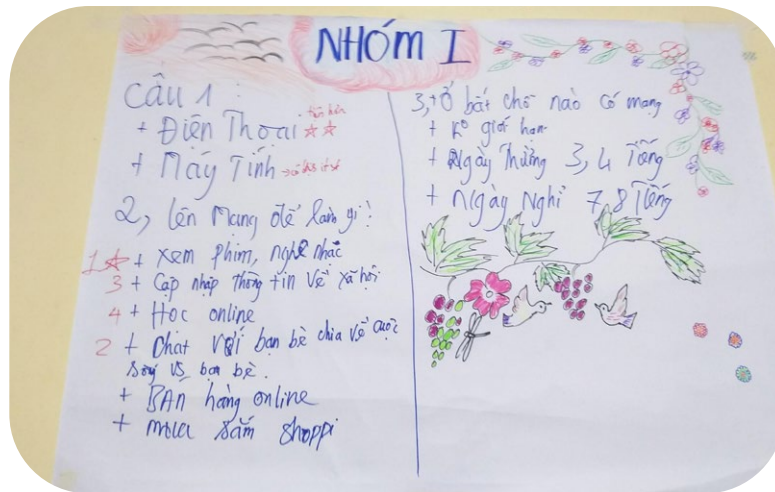 NHÓM I
Câu 1:
+ Điện Thoại
+ Máy Tính
2, lên mạng để làm gì?
1 + xem phim, nghe nhạc
3 + Cập nhập thông tin về xã hội
4 + Học online
2 + Chat với bạn bè chia về cuộc
sống vs bạn bè.
+ BÁN hàng online
+ mua sắm shoppi
3, + Ở bất chỗ nào có mạng
+ Ko giới hạn
+ Ngày Thường 3, 4 Tiếng
+ Ngày Nghỉ 7, 8 Tiếng